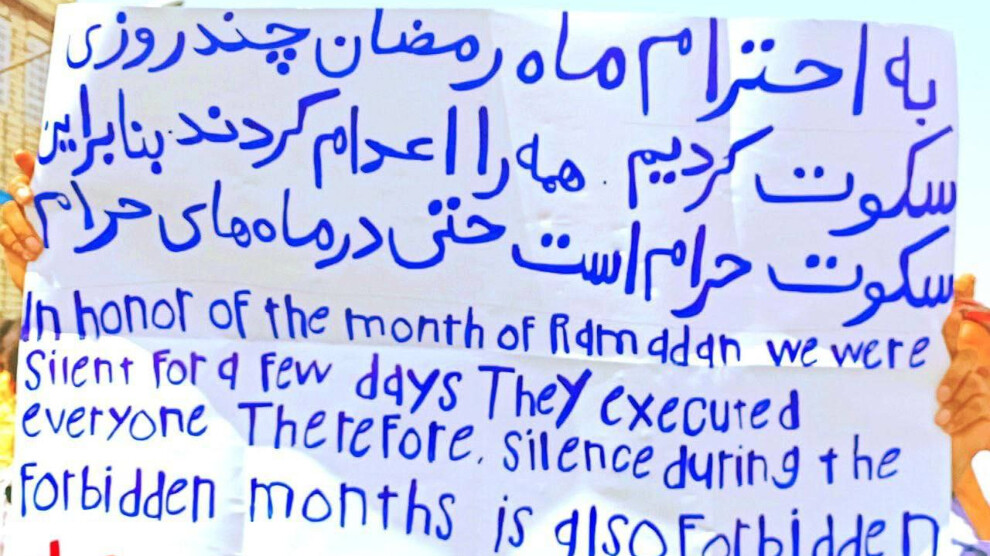 به احترام ماه رمضان چند روزی
سکوت کردیم. همه را اعدام کردند. بنابراین
سکوت حرام است حتی در ماه‌های حرام
In honor of the month of Ramadan we were
silent for a few days They executed
everyone Therefore, silence during the
forbidden months is also forbidden